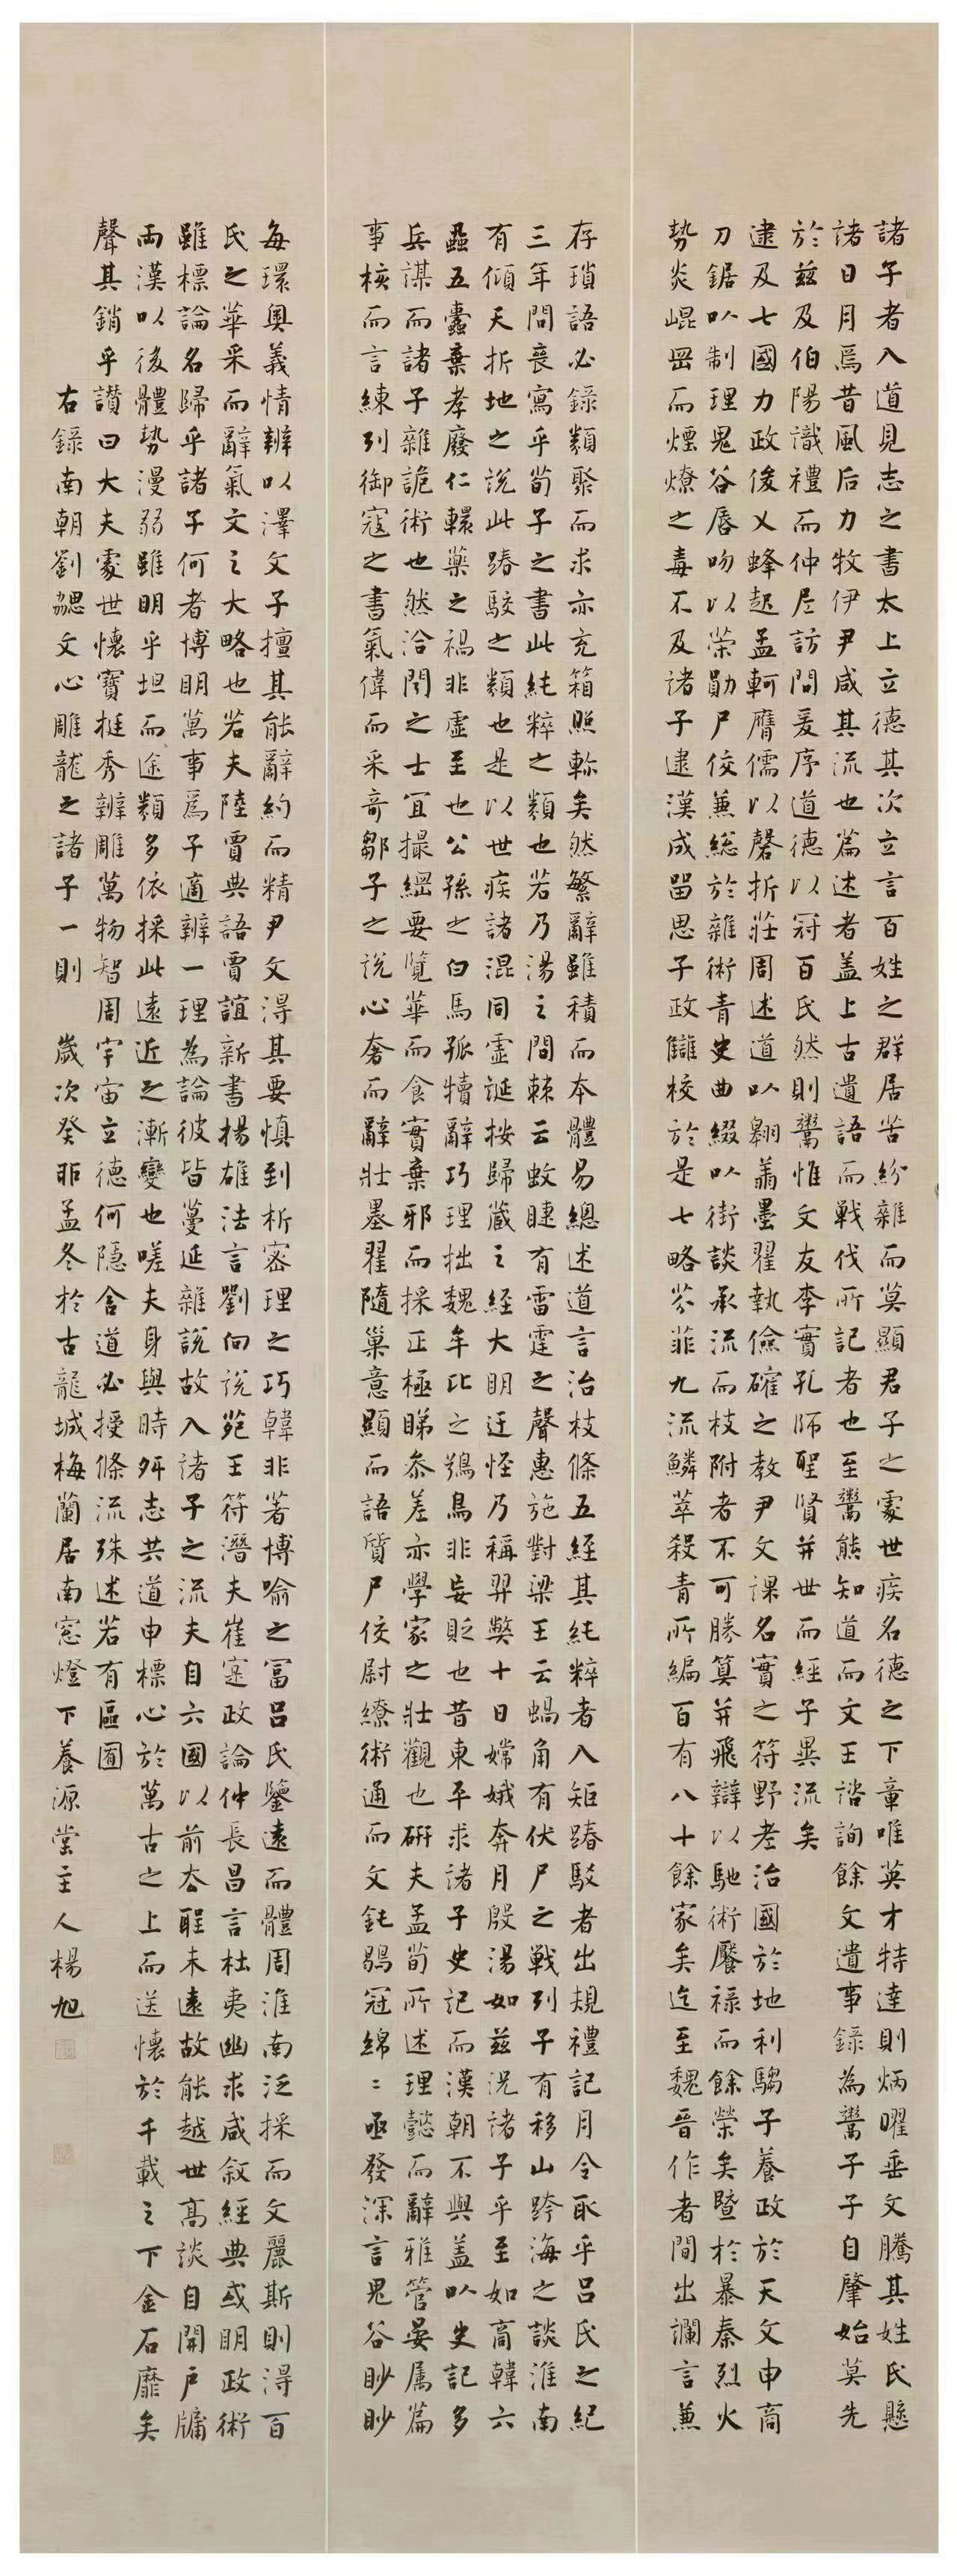 諸子者入道見志之書太上立德其次立言百姓之群居苦紛雜而莫顯君子之處世疾名德之下章唯英才特達則炳曜垂文騰其姓氏懸
諸日月焉昔風后力牧伊尹咸其流也篇述者蓋上古遺語而戰伐所記者也至鬻熊知道而文王諮詢餘文遺事錄為鬻子子自肇始莫先
於茲及伯陽識禮而仲尼訪問爰序道德以冠百氏然則鬻惟文友李實孔師聖賢并世而經子異流矣
逮及七國力政俊乂蜂起孟軻膺儒以磬折莊周述道以翱翔墨翟執儉確之教尹文課名實之符野老治國於地利騶子養政於天文申商
刀鋸以制理鬼谷唇吻以榮勛尸佼兼總於雜術青史曲綴以街談承流而枝附者不可勝算并飛辯以馳術饜祿而餘榮矣暨於暴秦烈火
勢炎崐岡而煙燎之毒不及諸子逮漢成留思子政讎校於是七略芬菲九流鱗萃殺青所編百有八十餘家矣迄至魏晉作者間出讕言兼
存瑣語必錄類聚而求亦充箱照軫矣然繁辭雖積而本體易總述道言治枝條五經其純粹者入矩踳駁者出規禮記月令取乎呂氏之紀
三年問喪寫乎荀子之書此純粹之類也若乃湯之問棘云蚊睫有雷霆之聲惠施對梁王云蝸角有伏尸之戰列子有移山跨海之談淮南
有傾天折地之說此踳駁之類也是以世疾諸混同虛誕按歸藏之經大明迂怪乃稱羿斃十日嫦娥奔月殷湯如茲況諸子乎至如商韓六
蝨五蠹棄孝廢仁轘藥之禍非虛至也公孫之白馬孤犢辭巧理拙魏牟比之鴞鳥非妄貶也昔東平求諸子史記而漢朝不與蓋以史記多
兵謀而諸子雜詭術也然洽聞之士宜撮綱要覽華而食實棄邪而採正極睇參差亦學家之壯觀也研夫孟荀所述理懿而辭雅管晏屬篇
事核而言練列御寇之書氣偉而采奇鄒子之說心奢而辭壯墨翟隨巢意顯而語質尸佼尉繚術通而文鈍鶡冠綿〻亟發深言鬼谷眇眇
每環奧義情辨以澤文子擅其能辭約而精尹文得其要慎到析密理之巧韓非著博喻之富呂氏鑒遠而體周淮南泛採而文麗斯則得百
氏之華采而辭氣文之大略也若夫陸賈典語賈誼新書揚雄法言劉向說苑王符潛夫崔寔政論仲長昌言杜夷幽求咸敘經典或明政術
雖標論名歸乎諸子何者博明萬事為子適辨一理為論彼皆蔓延雜說故入諸子之流夫自六國以前去聖未遠故能越世高談自開戶牖
兩漢以後體勢漫弱雖明乎坦而途類多依採此遠近之漸變也嗟夫身與時舛志共道申標心於萬古之上而送懷於千載之下金石靡矣
聲其銷乎讚曰大夫處世懷寶挺秀辨雕萬物智周宇宙立德何隱含道必授條流殊述若有區囿
右錄南朝劉勰文心雕龍之諸子一則 歲次癸卯孟冬於古龍城梅蘭居南窗燈下養源堂主人楊旭